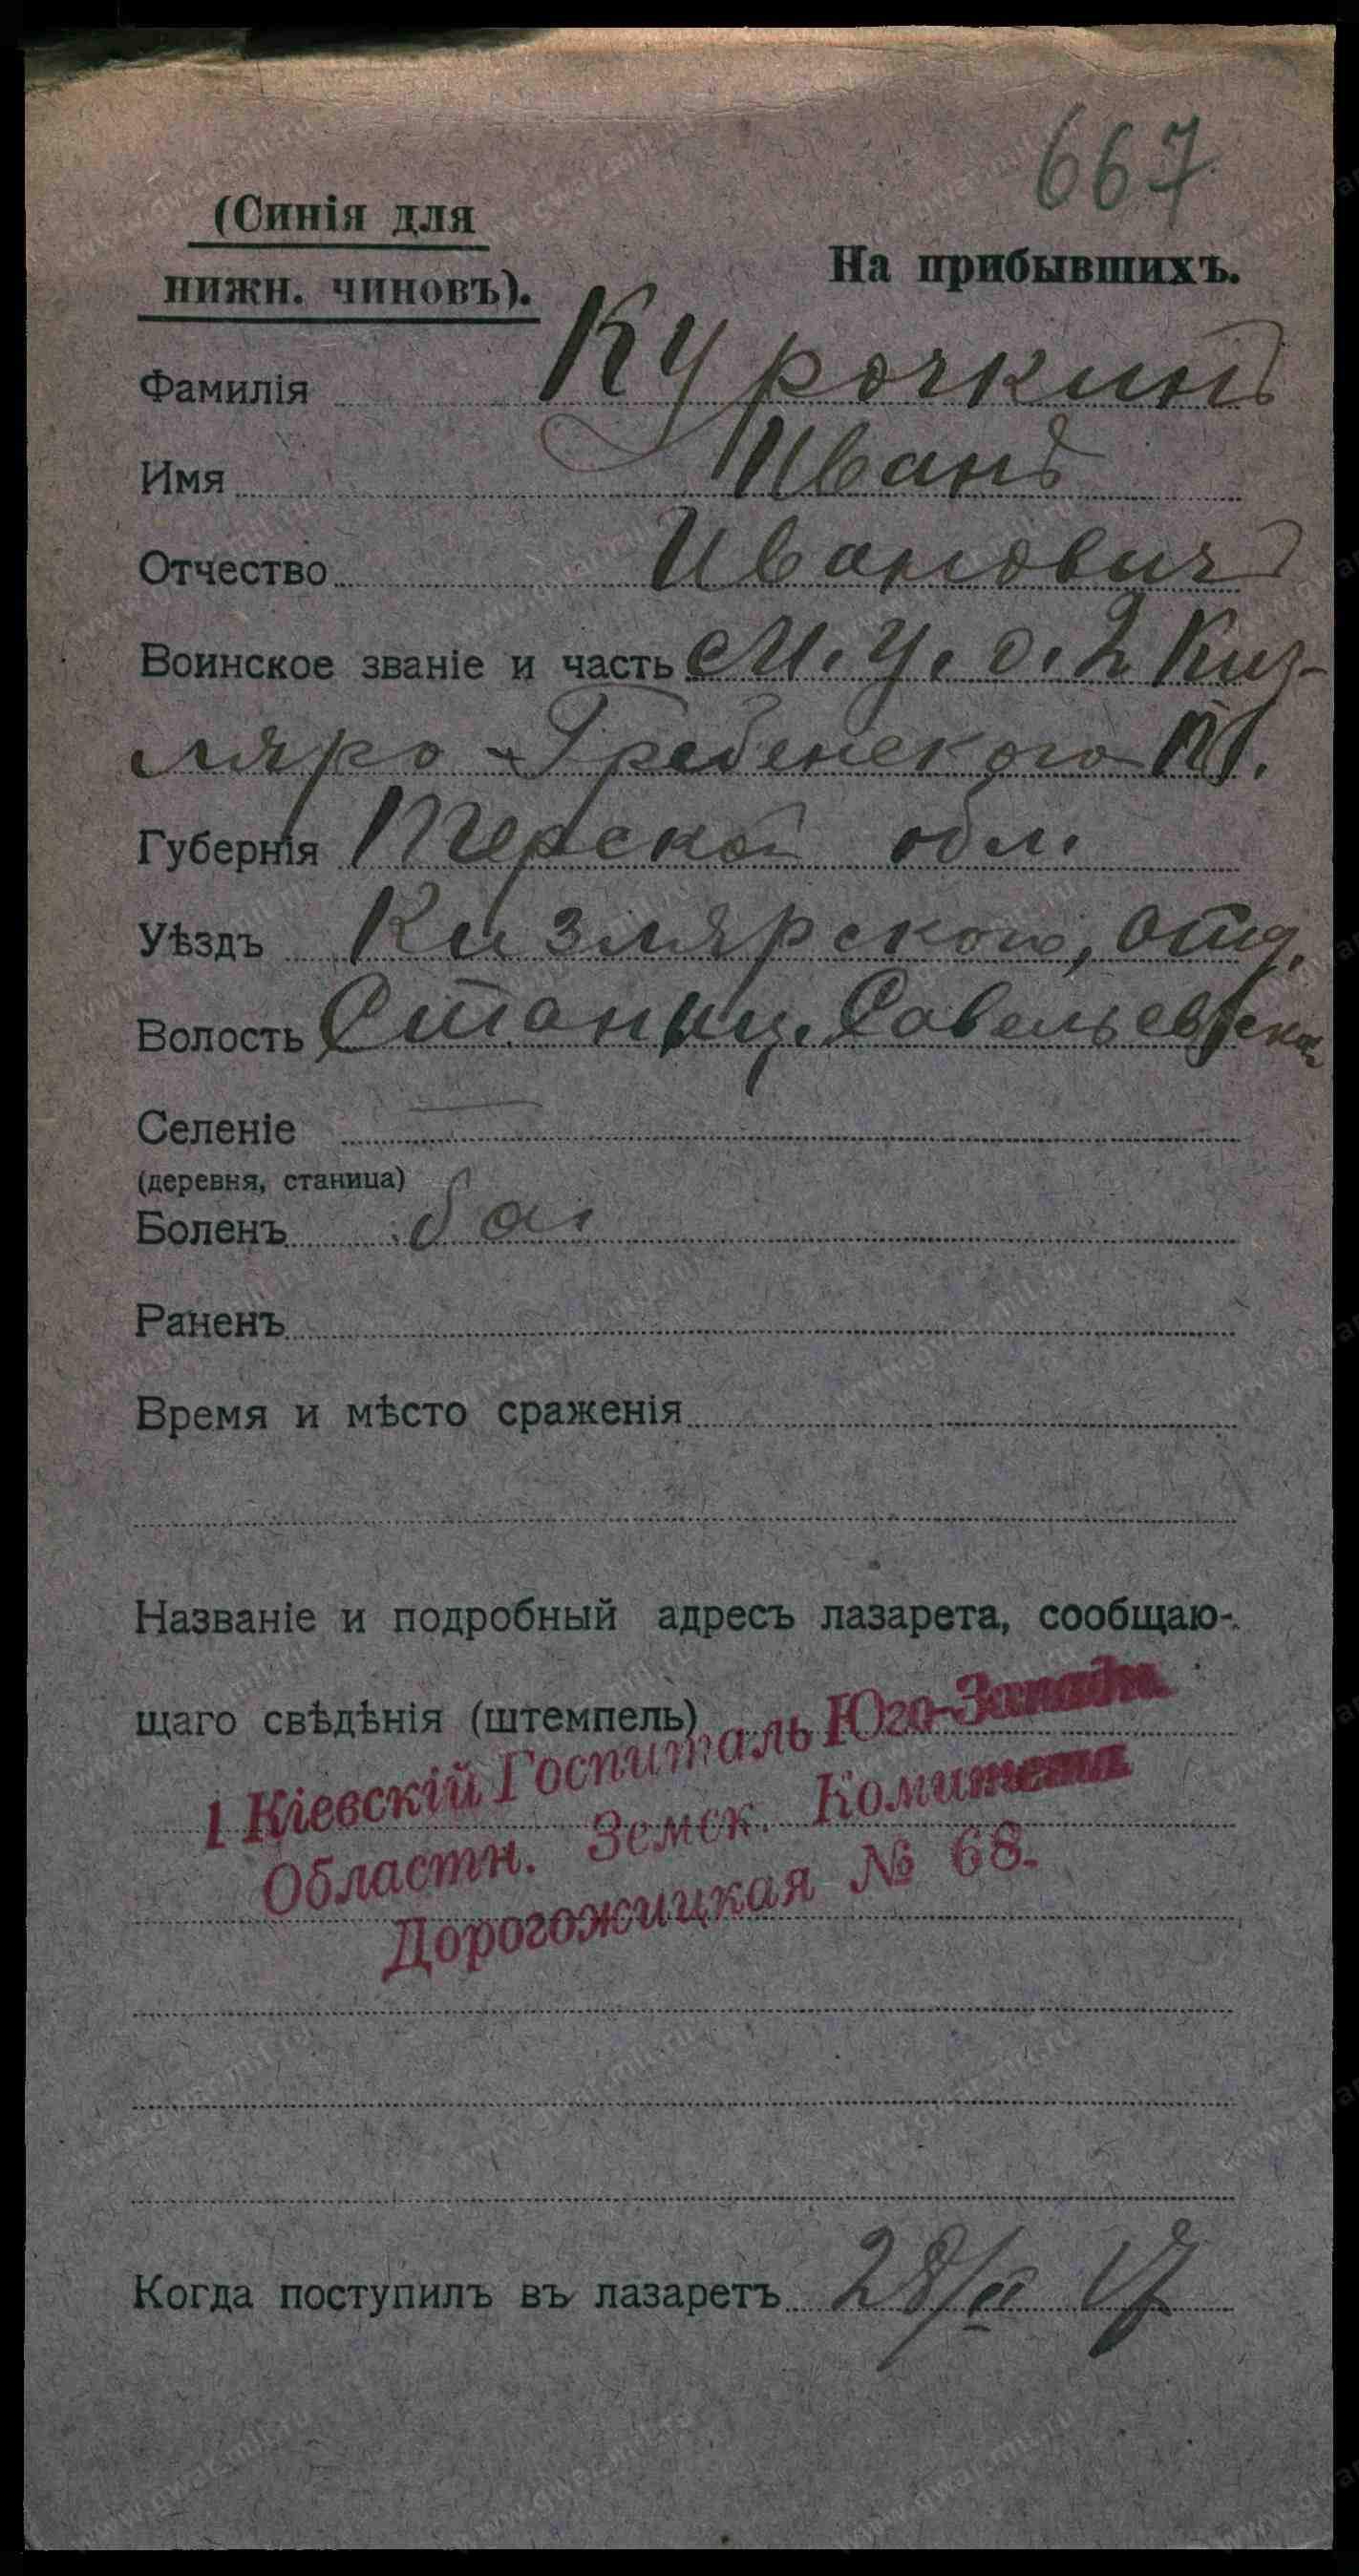 667
(Синія для
нижн. чиновъ).
На прибывшихъ.
Фамилія Курочкинъ
Имя Иванъ
Отчество Ивановичъ
Воинское званіе и часть М. У. О. 2 Киз-
ляро-Гребенского п.
Губернія Терской обл.
Уѣздъ Кизлярской, отд.
Волость Станиц. Савельевской
Селеніе —
(деревня, станица)
Боленъ бол
Раненъ
Время и мѣсто сраженія
Названіе и подробный адресъ лазарета, сообщаю-
щаго свѣдѣнія (штемпель)
1 Кіевскій Госпиталь Юго-Западн.
Областн. Земск. Комитета
Дорогожицкая № 68.
Когда поступилъ въ лазаретъ 28/II 17